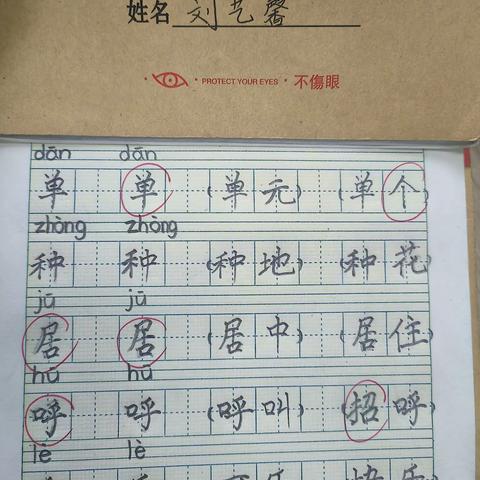 姓名 刘艺馨
PROTECT YOUR EYES 不傷眼
dān dān
单 单 (单元) (单个)
zhòng zhòng
种 种 (种地) (种花)
jū jū
居 居 (居中) (居住)
hū hū
呼 呼 (呼叫) (招呼)
lè lè